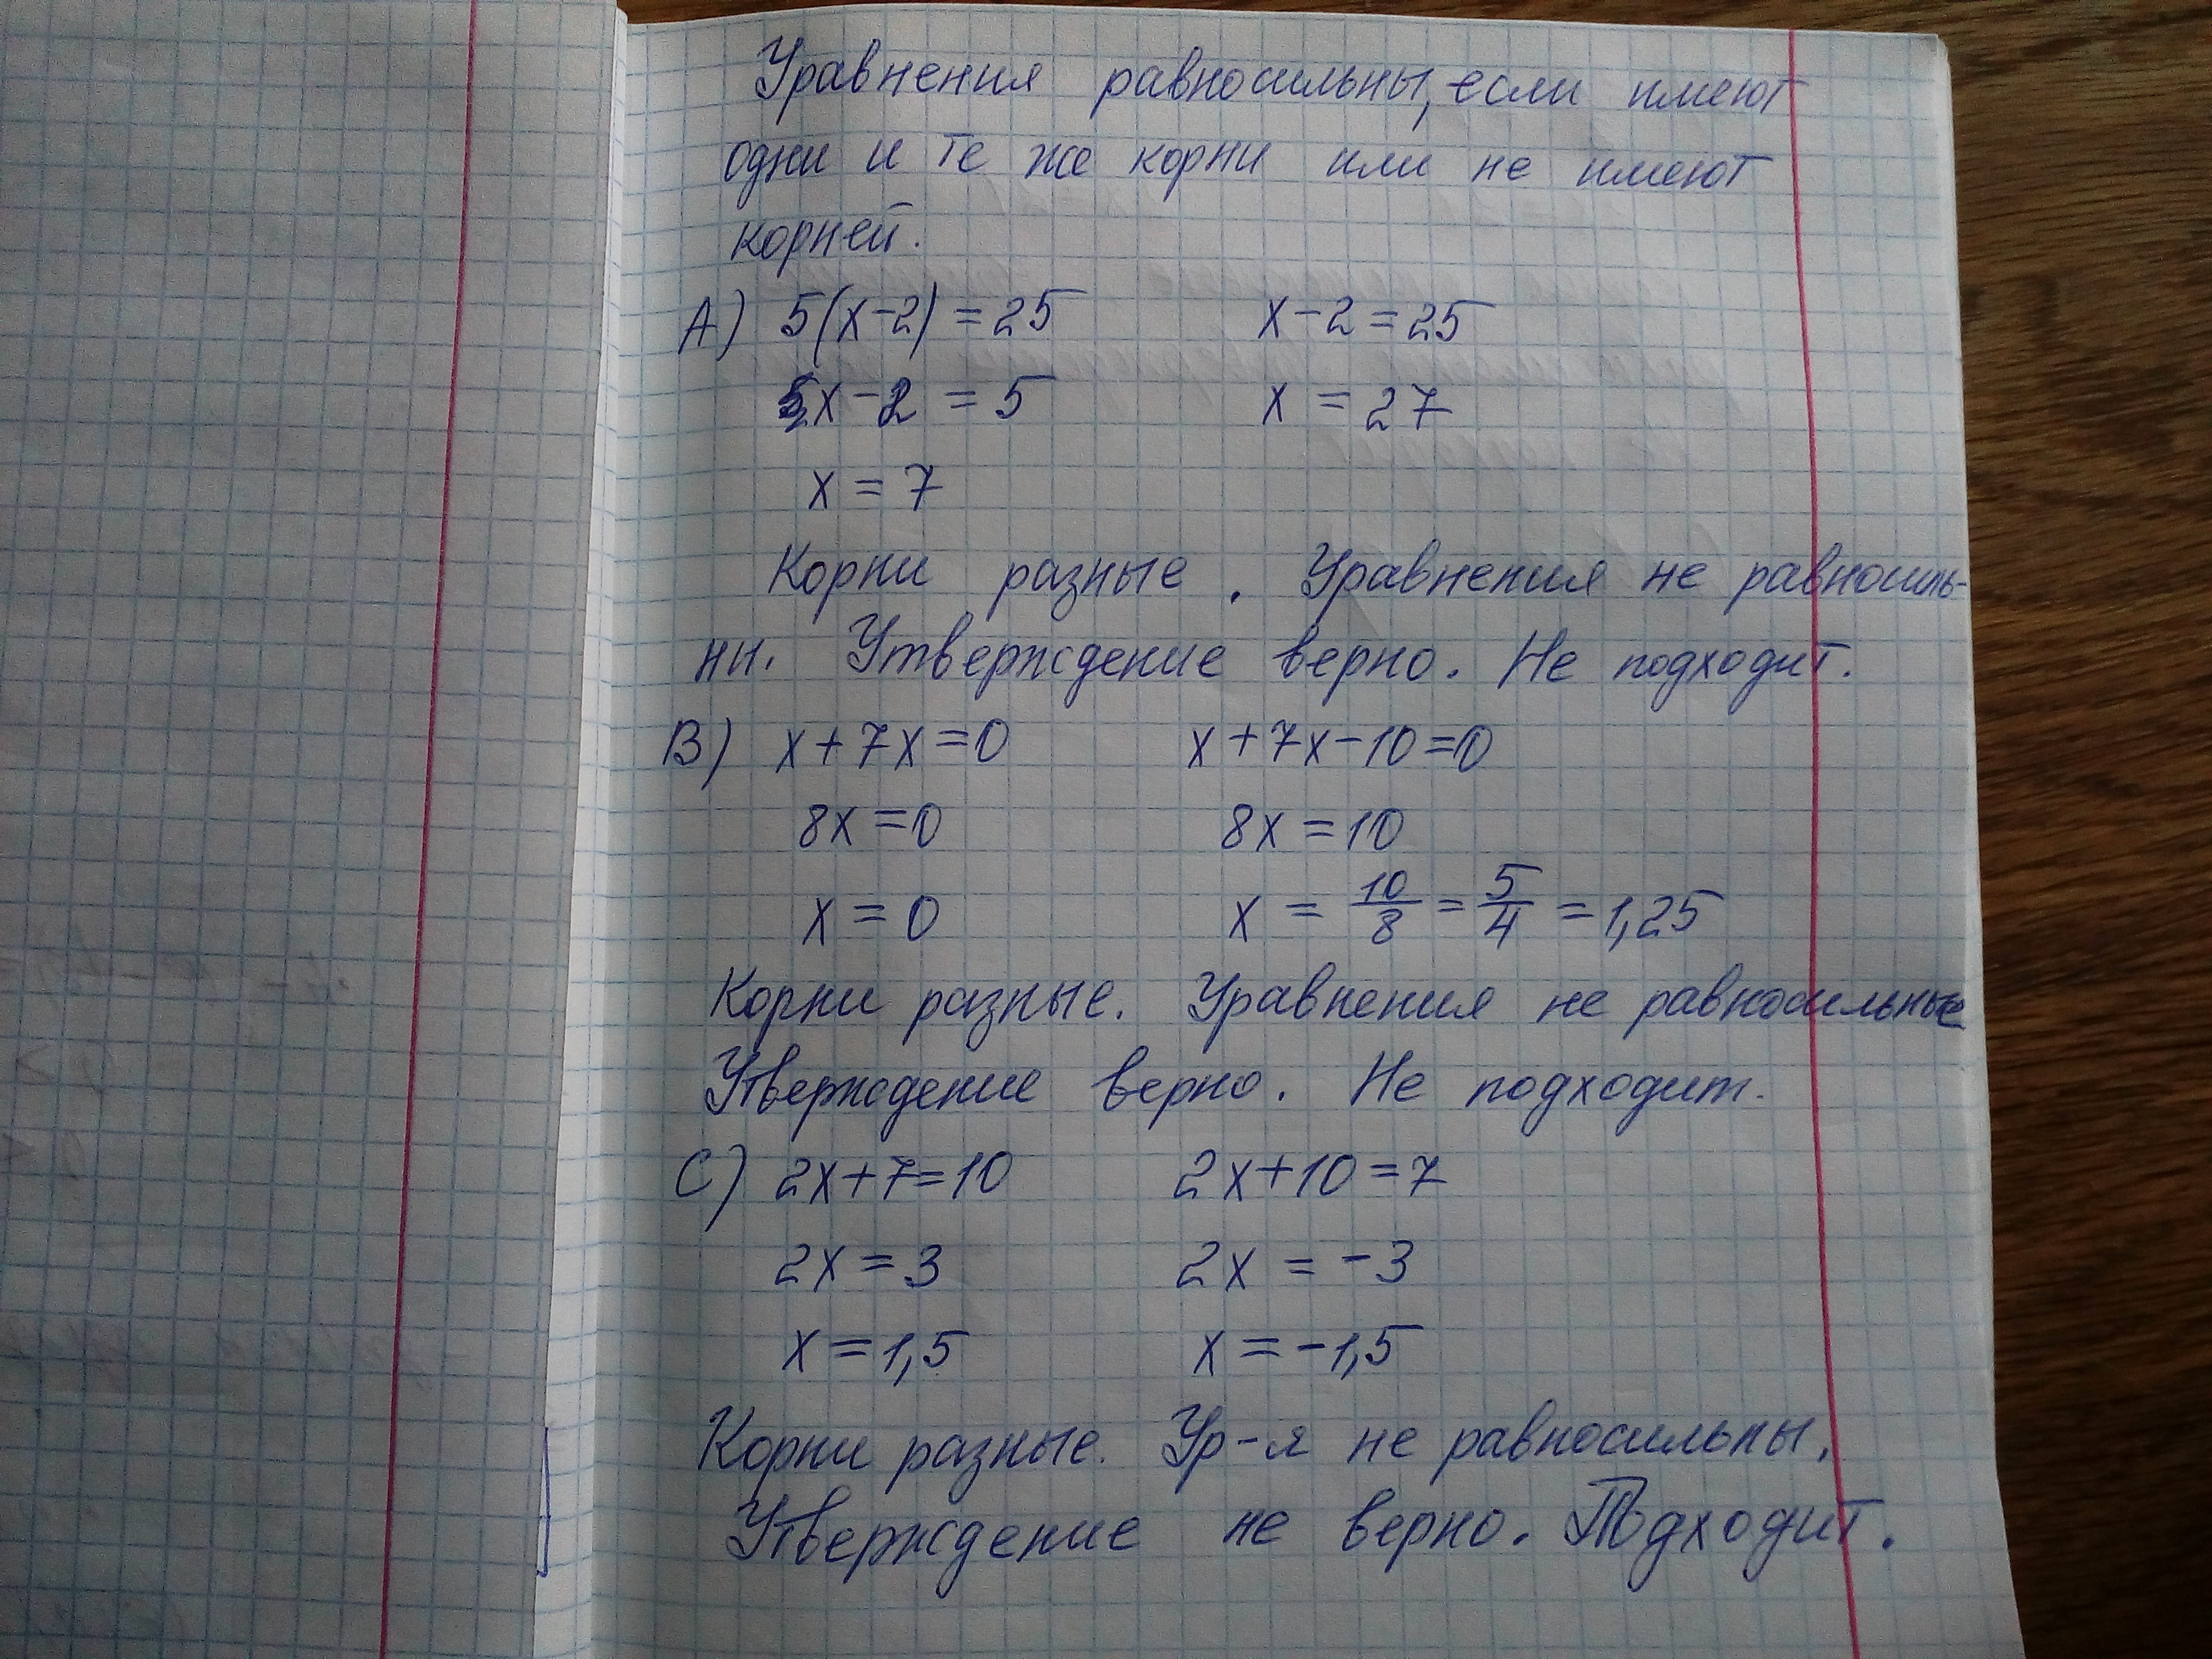 Уравнения равносильны, если имеют
одни и те же корни или не имеют
корней.
А) 5(х-2) = 25 х-2 = 25
х-2 = 5 х = 27
х = 7
Корни разные. Уравнения не равносиль-
ны. Утверждение верно. Не подходит.
В) х+7х=0 х+7х-10=0
8х=0 8х=10
х = 0 х = 10/8 = 5/4 = 1,25
Корни разные. Уравнения не равносильные
Утверждение верно. Не подходит.
С) 2х+7=10 2х+10=7
2х=3 2х = -3
х=1,5 х=-1,5
Корни разные. Ур-я не равносильны.
Утверждение не верно. Подходит.